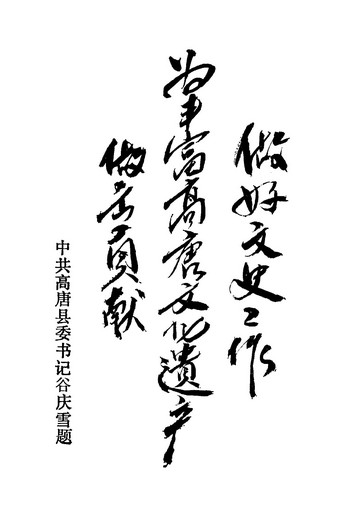 做好文史工作
为丰富高唐文化遗产
做出贡献
中共高唐县委书记谷庆雪题